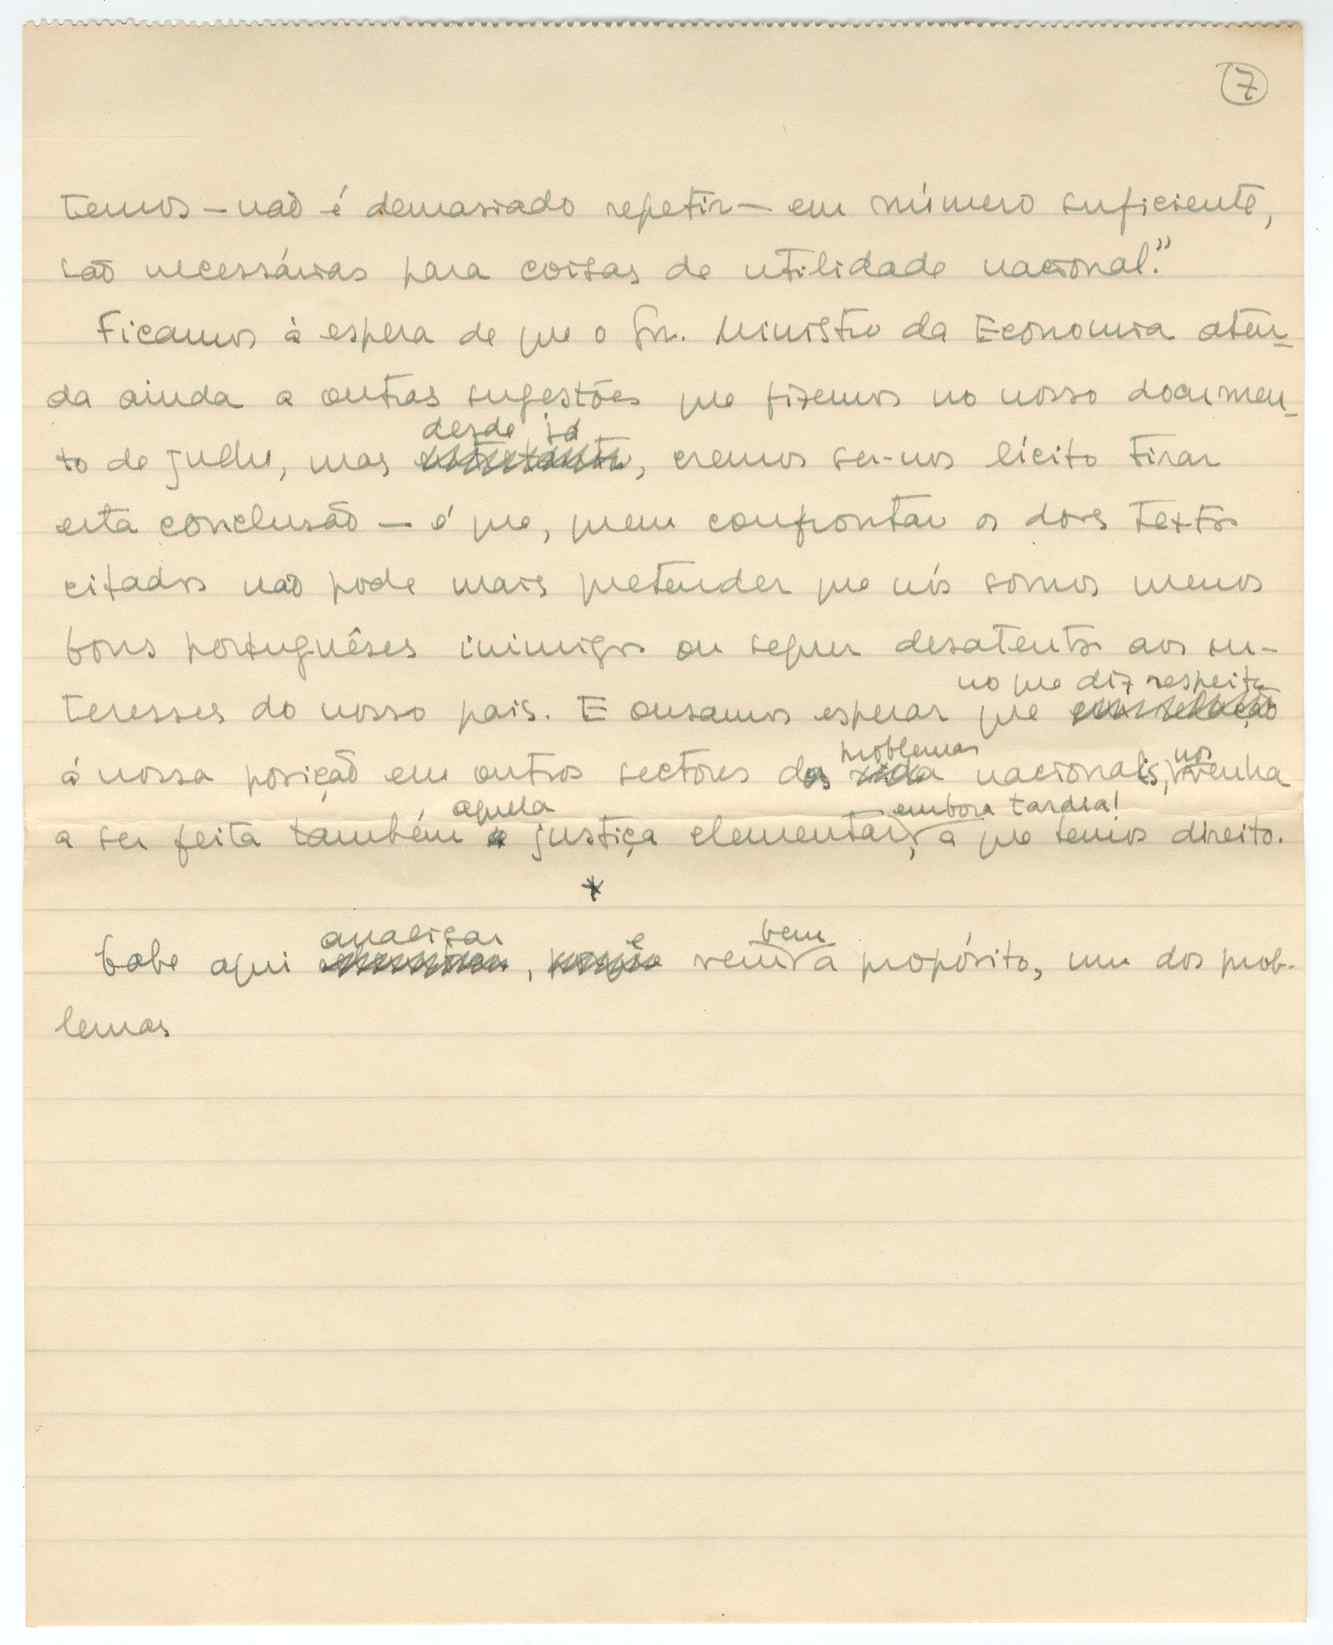 7
temos — não é demasiado repetir — em número suficiente,
são necessárias para coisas de utilidade nacional."
Ficamos à espera de que o Snr. Ministro da Economia aten-
da ainda a outras sugestões que fizemos no nosso documen-
desde já
to de julho, mas entretanto, cremos ser-nos lícito tirar
esta conclusão — é que, quem confrontar os dois textos
citados não pode mais pretender que nós somos menos
bons portuguêses inimigos ou sequer desatentos aos in-
no que diz respeito
teresses do nosso pais. E ousamos esperar que em relação
problemas nos
á nossa posição em outros sectores dos vida nacionais, venha
aquela embora tardia!
a ser feita também a justiça elementar, a que temos direito.
*
analisar e bem
Cabe aqui , vem a propósito, um dos prob-
lemas